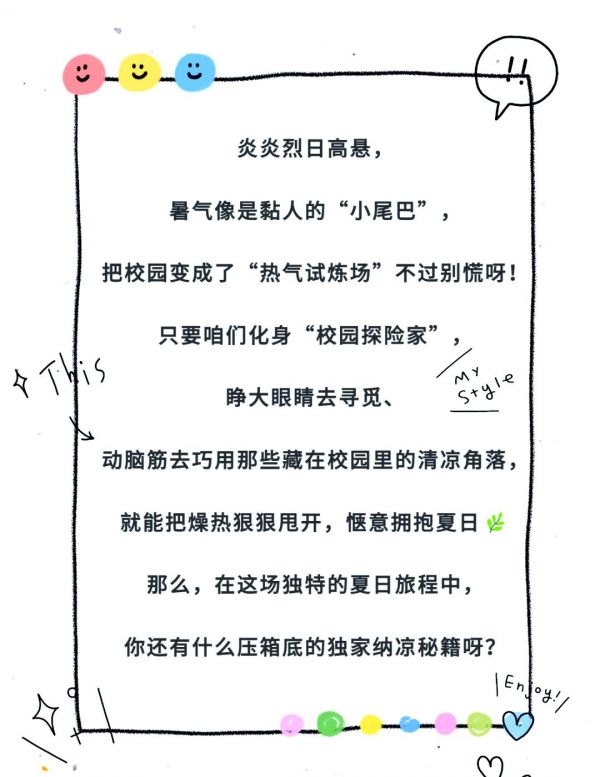 !!
炎炎烈日高悬，
暑气像是黏人的“小尾巴”，
把校园变成了“热气试炼场”不过别慌呀！
只要咱们化身“校园探险家”，
This
My
Style
睁大眼睛去寻觅、
动脑筋去巧用那些藏在校园里的清凉角落，
就能把燥热狠狠甩开，惬意拥抱夏日
那么，在这场独特的夏日旅程中，
你还有什么压箱底的独家纳凉秘籍呀？
Enjoy!